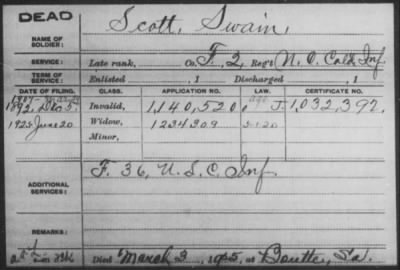 DEAD
NAME OF SOLDIER: Scott, Swain,
SERVICE: Late rank, Co. F, 2, Reg't N. C. Col'd Inf.
TERM OF SERVICE: Enlisted , 1 Discharged , 1
DATE OF FILING. CLASS. APPLICATION NO. LAW. CERTIFICATE NO.
1892, Dec 5. Invalid, 1,140,520, J. 1,032,392,
1925 June 20 Widow, 1234309 5-1-20
Minor,
ADDITIONAL SERVICES: F. 36, U. S. C. Inf.
REMARKS:
Died March 3, 1925, at Boutte, La.